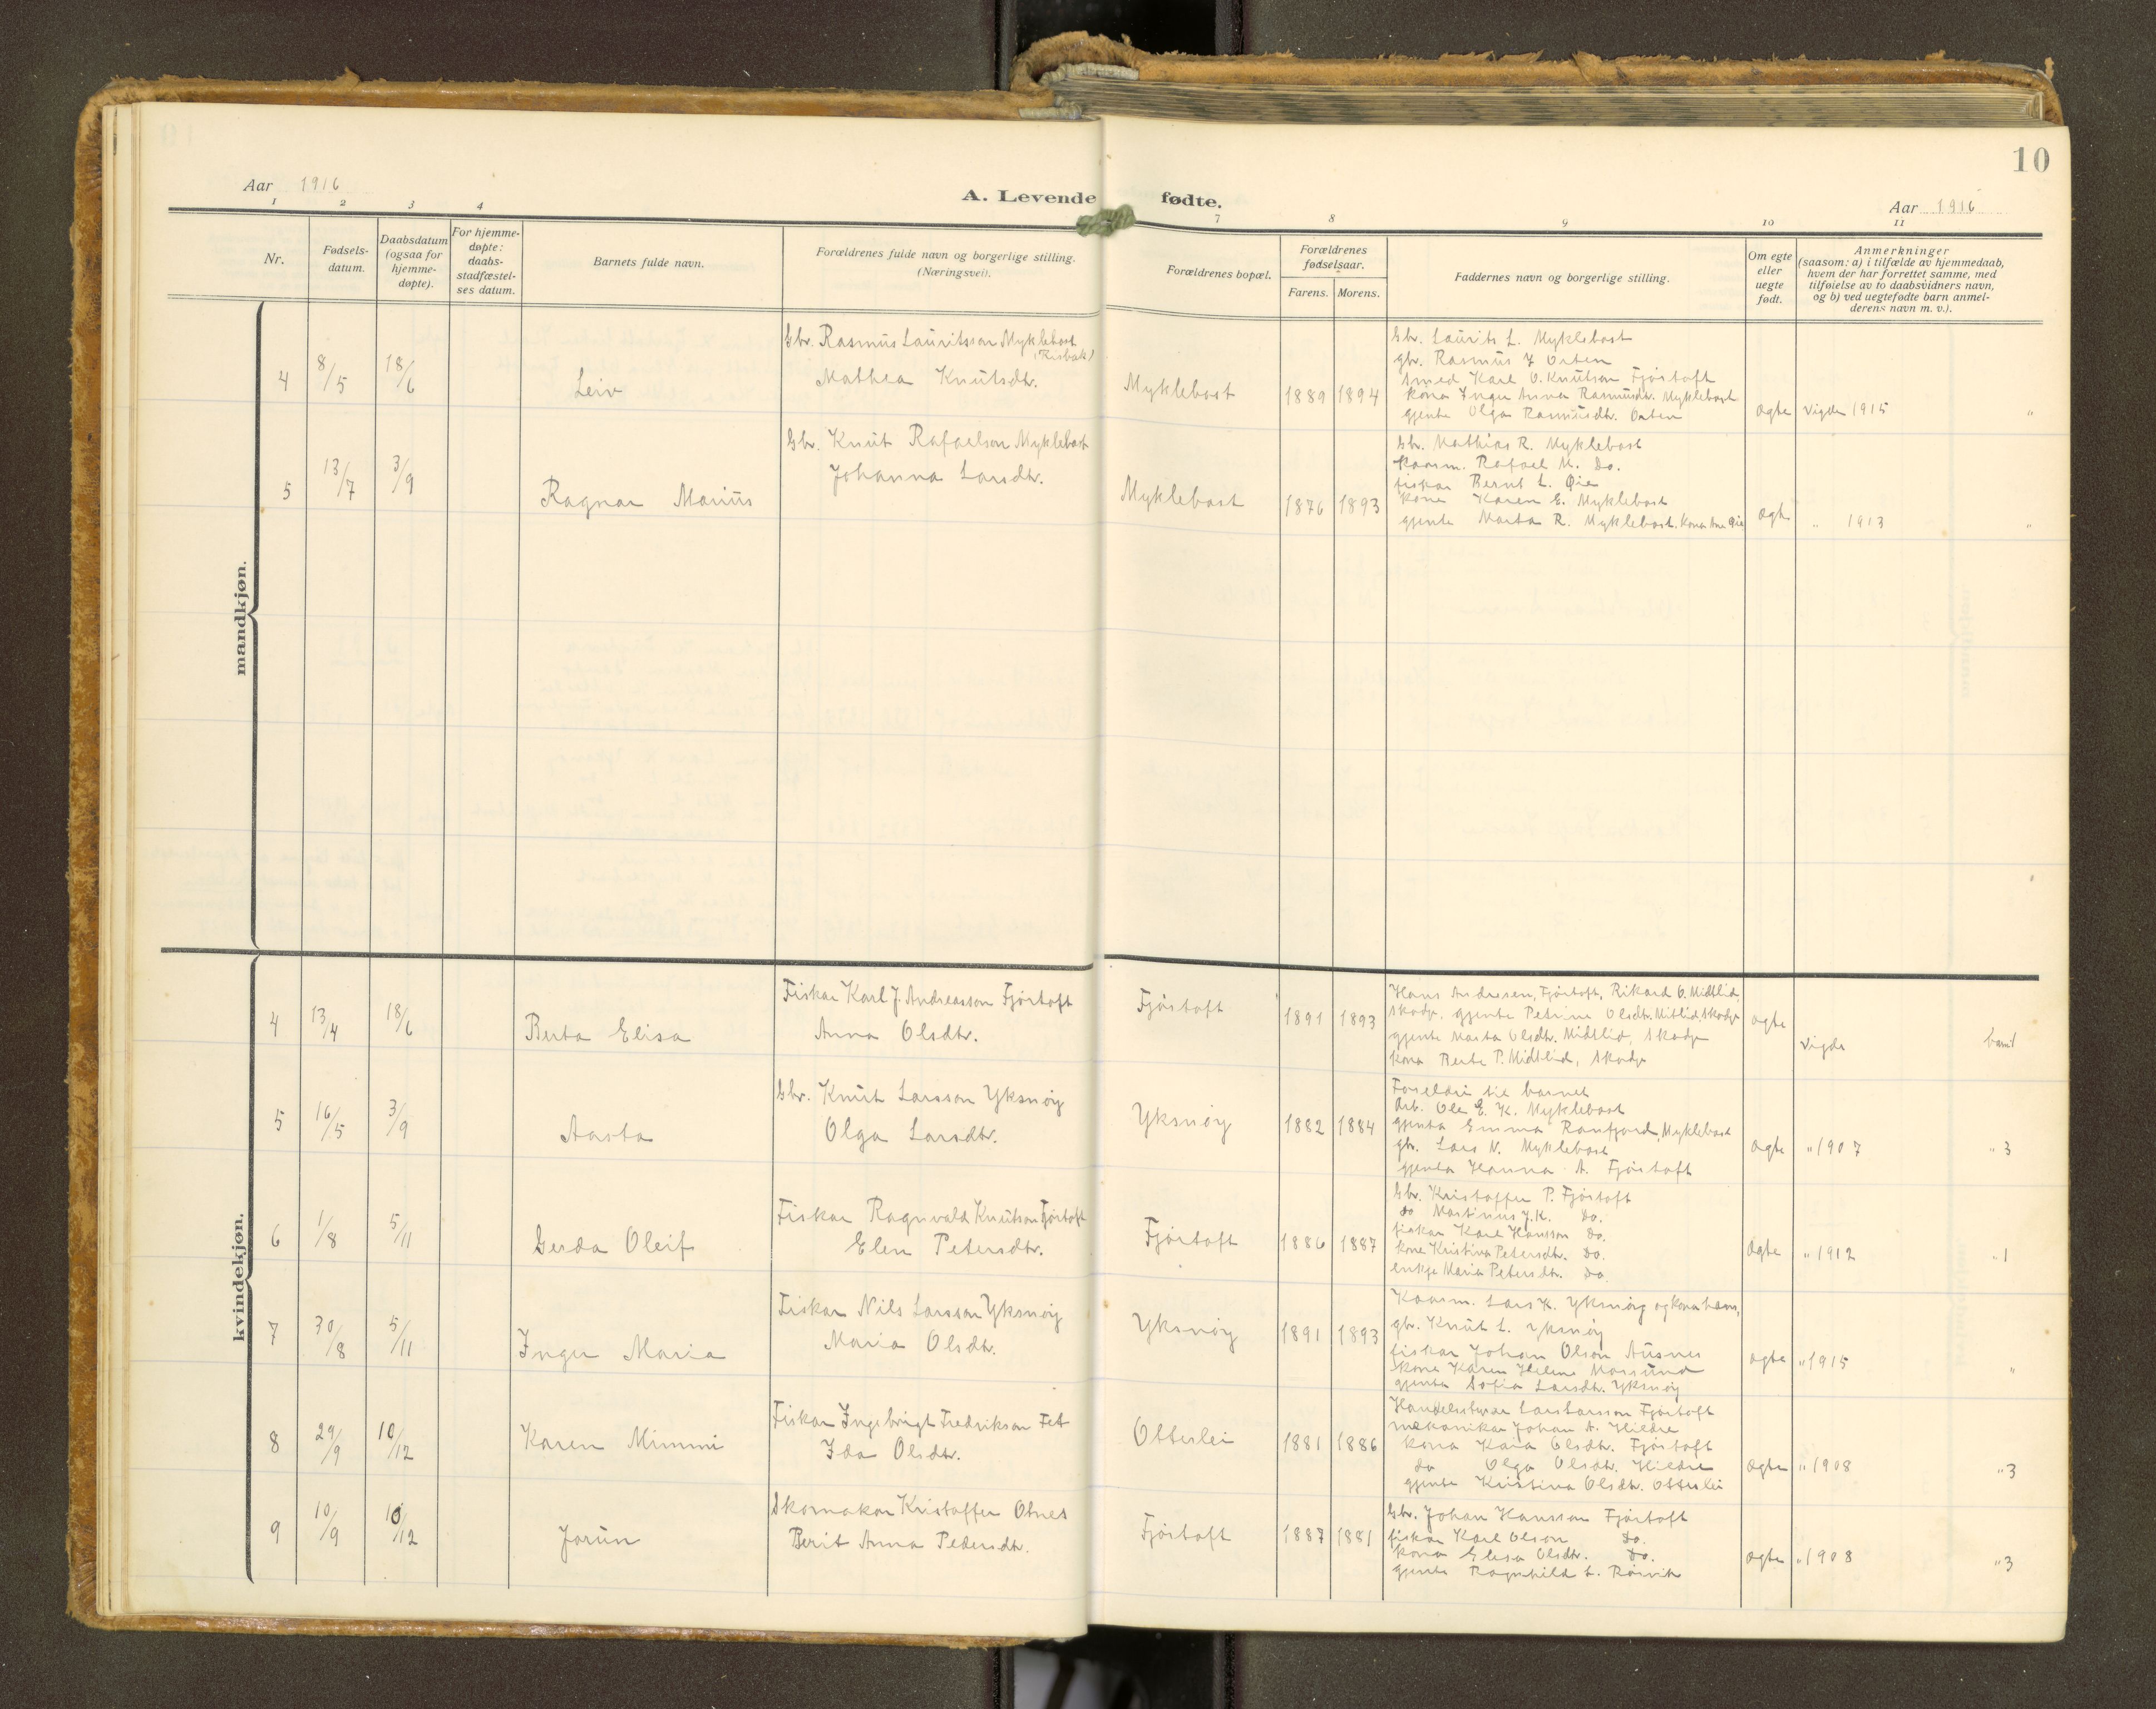 10
Aar 1916
A. Levende fødte.
Aar 1916
1 2 3 4 7 8 9 10 11
Nr.
Fødsels-
datum.
Daabsdatum
(ogsaa for
hjemme-
døpte).
For hjemme-
døpte:
daabs-
stadfæstel-
ses datum.
Barnets fulde navn.
Forældrenes fulde navn og borgerlige stilling.
(Næringsvei).
Forældrenes bopæl.
Forældrenes
fødselsaar.
Farens. Morens.
Faddernes navn og borgerlige stilling.
Om egte
eller
uegte
født.
Anmerkninger
(saasom: a) i tilfælde av hjemmedaab,
hvem der har forrettet samme, med
tilføielse av to daabsvidners navn,
og b) ved uegtefødte barn anmel-
derens navn m. v.).
mandkjøn.
4 8/5 18/6 Leiv
Gbr. Rasmus Lauritsson Myklebost
(Risbak)
Mathea Knutsdtr.
Myklebost 1889 1894
Gbr. Laurits L. Myklebost
gbr. Rasmus J Orten
smed Karl O. Knutson Fjörtoft
kona Inger Anna Rasmusdtr. Myklebost
gjenta Olga Rasmusdtr. Orten
ægte vigde 1915 "
5 13/7 3/9 Ragnar Marius
Gbr. Knut Rafaelson Myklebost
Johanna Larsdtr.
Myklebost 1876 1893
Gbr. Mathias R. Myklebost
kaarm. Rafael M. do.
fiskar Bernt L. Øie
kone Karen E. Myklebost
gjenta Marta R. Myklebost. Kona Ane Øie
ægte " 1913 "
kvindekjøn.
4 13/4 18/6 Berta Elisa
Fiskar Karl J. Andreasson Fjörtoft
Anna Olsdtr.
Fjörtoft 1891 1893
Hans Andresen, Fjörtoft, Rikard O. Midtlid,
Skodje. gjenta Petrine Olsdtr. Mitlid, Skodje
gjenta Marta Olsdtr. Midtlid, Skodje
kona Berte P. Midtlid, Skodje
ægte vigde
5 16/5 3/9 Aasta
Gbr. Knut Larsson Yksnöy
Olga Larsdtr.
Yksnöy 1882 1884
Foreldri til barnet
Arb. Ole E. K. Myklebost
gjenta Emma Ranfjord, Myklebost
gbr. Lars N. Myklebost
gjenta Hanna A. Fjörtoft
ægte " 1907 " 3
6 1/8 5/11 Gerda Oleif
Fiskar Ragnvald Knutson Fjörtoft
Elen Petersdtr.
Fjörtoft 1886 1887
Gbr. Kristoffer P. Fjörtoft
do Martinus J. K. do.
fiskar Karl Hansson do.
kone Kristina Petersdtr. do.
enkje Maria Petersdtr. do.
ægte " 1912 " 1
7 30/8 5/11 Inger Maria
Fiskar Nils Larsson Yksnöy
Maria Olsdtr.
Yksnöy 1891 1893
Kaarm. Lars K. Yksnöy og kona hans,
gbr. Knut L. Yksnöy
fiskar Johan Olson Ausnes
kone Karen Helene Morsund
gjenta Sofia Larsdtr. Yksnöy
ægte " 1915 "
8 29/9 10/12 Karen Mimmi
Fiskar Ingebrigt Fredrikson Fet
Ida Olsdtr.
Otterlei 1881 1886
Handelsstyrar Lars Larsson Fjörtoft
mekanikar Johan A. Hildre
kona Kaia Olsdtr. Fjörtoft
do Olga Olsdtr. Hildre
gjenta Kristina Olsdtr. Otterlei
ægte " 1908 " 3
9 10/9 10/12 Jorun
Skomakar Kristoffer Otnes
Berit Anna Pedersdtr.
Fjörtoft 1887 1881
Gbr. Johan Hansson Fjörtoft
fiskar Karl Olson do.
kona Elisa Olsdtr. do.
gjenta Ragnhild L. Rörvik
ægte " 1908 " 3